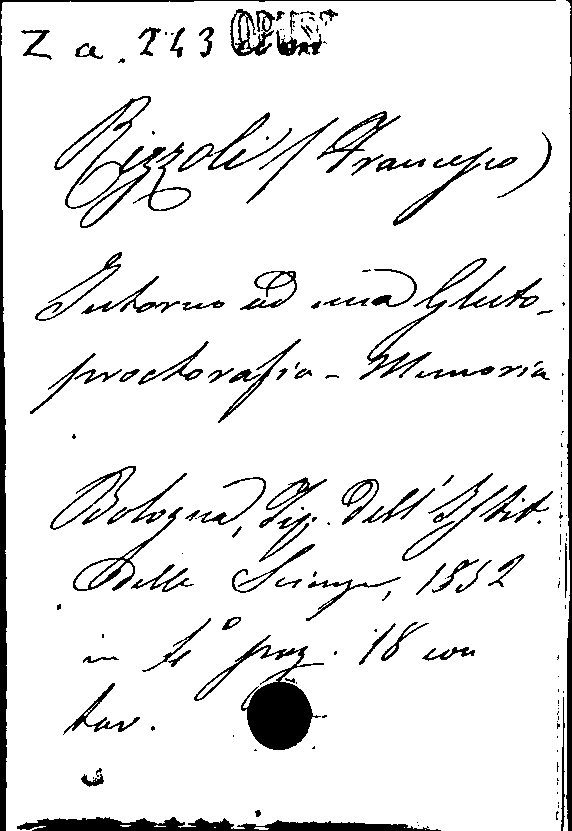 Z a. 243 OPUSC
Rizzoli (Francesco)
Intorno ad una Gluto-
proctorafia - Memoria
Bologna, Tip. dell'Istit.
delle Scienze, 1852
in 4° pag. 18 con
tav.